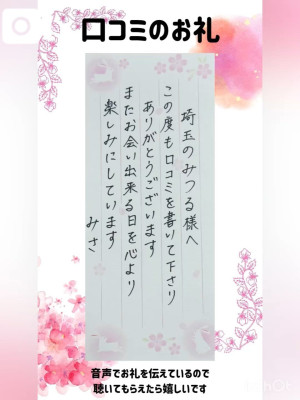 口コミのお礼
埼玉のみつる様へ
この度も口コミを書いて下さり
ありがとうございます
またお会い出来る日を心より
楽しみにしています
みさ
音声でお礼を伝えているので
聴いてもらえたら嬉しいです